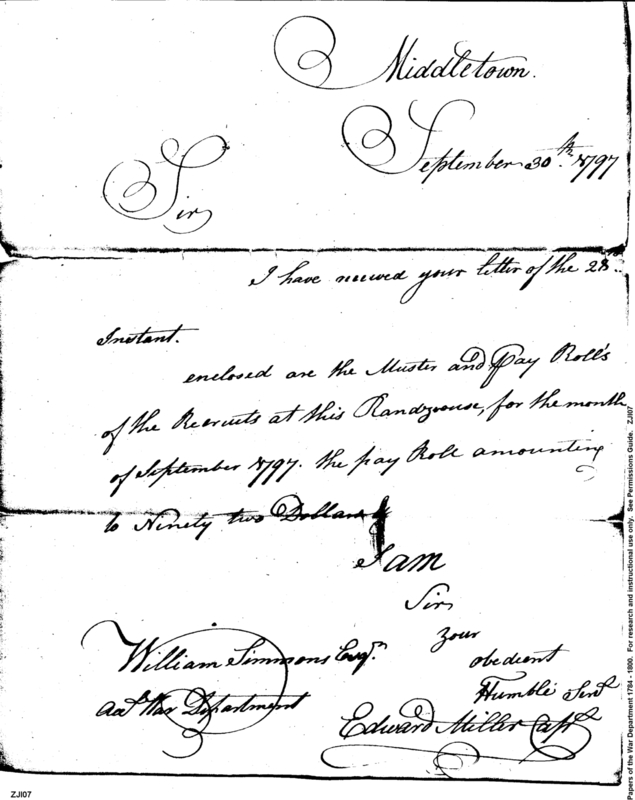 Middletown.
September 30th. 1797
Sir
I have received your letter of the 28..
Instant.
enclosed are the Muster and Pay Roll's
of the Recruits at this Randzvouse, for the month
of September 1797. the pay Roll amounting
to Ninety two Dollars
I am
Sir
your
obedient
Humble Servt
William Simmons Esqr.
Act War Department
Edward Miller Capt
Papers of the War Department 1784 - 1800. For research and instructional use only. See Permissions Guide. ZJI07
ZJI07